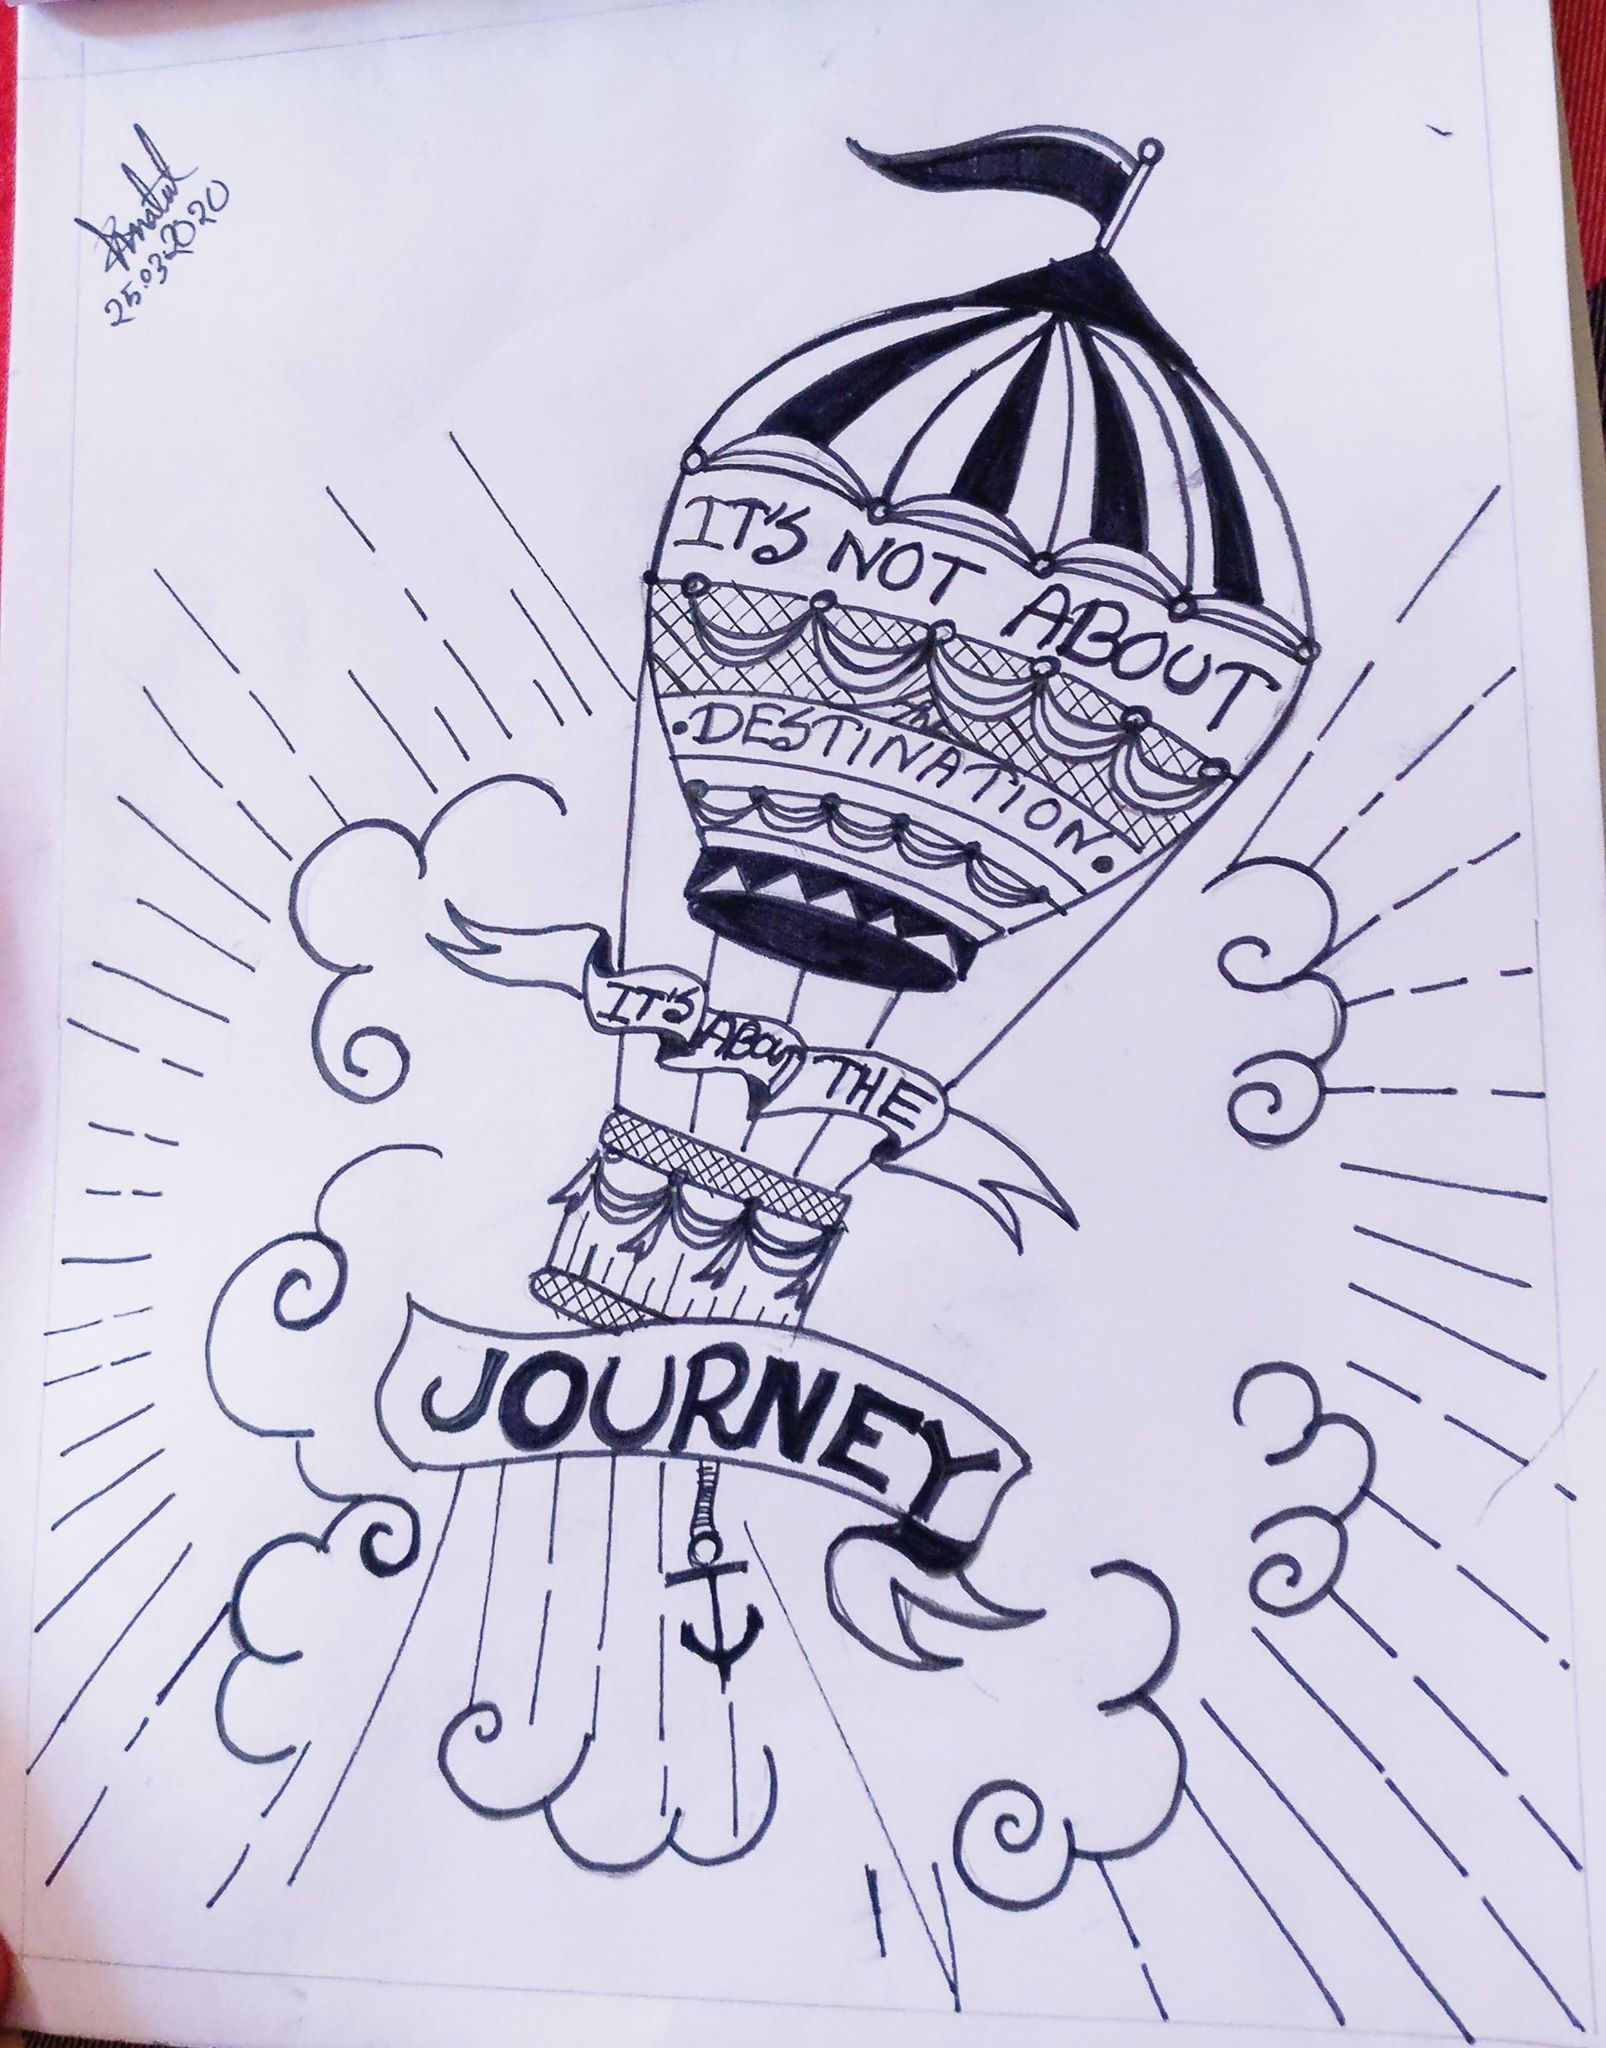 25.03.2020
IT'S NOT ABOUT
DESTINATION
IT'S ABOUT THE
JOURNEY